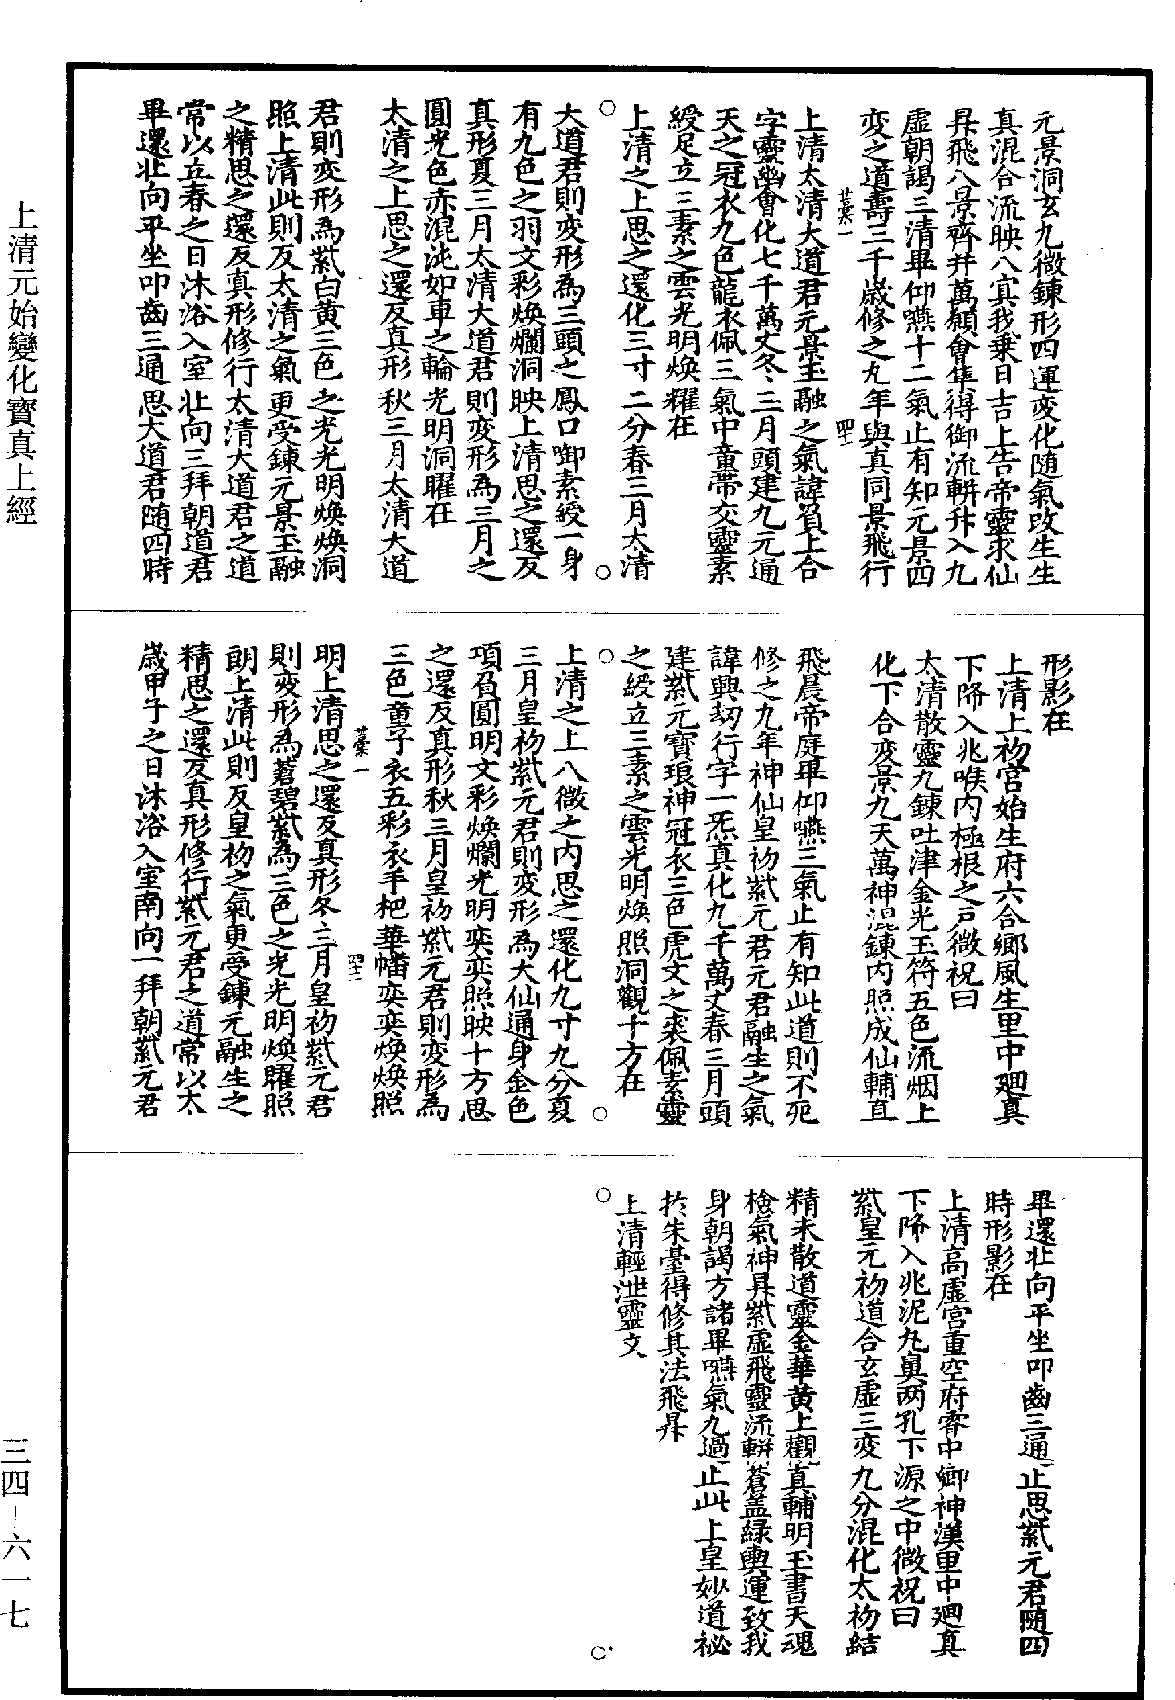 上清元始變化寶真上經
三四—六一七
元景洞玄九微鍊形四運変化随氣改生生
真混合流映八㝠我乗日吉上告帝靈求仙
昇飛八景齊并萬願會隼得御流軿升入九
虛朝謁三清畢仰嚥十二氣止有知元景四
変之道壽三千歲修之九年與真同景飛行
上清太清大道君元景玉融之氣諱負上合
字靈幽會化七千萬丈冬三月頭建九元通
天之冠衣九色龍衣佩三氣中童帶交靈素
綬足立三素之雲光明煥耀在
上清之上思之還化三寸二分春三月太清
大道君則変形為三頭之鳳口啣素綬一身
有九色之羽文彩煥爛洞映上清思之還反
真形夏三月太清大道君則変形為三月之
圓光色赤混沌如車之輪光明洞曜在
太清之上思之還反真形秋三月太清大道
君則変形為紫白黃三色之光光明煥煥洞
照上清此則反太清之氣更受鍊元景玉融
之精思之還反真形修行太清大道君之道
常以立春之日沐浴入室北向三拜朝道君
畢還北向平坐叩齒三通思大道君随四時
形影在
上清上初宮始生府六合鄉風生里中廻真
下降入兆喉內極根之戶微祝曰
太清散靈九鍊吐津金光玉符五色流烟上
化下合変景九天萬神混鍊內照成仙輔直
飛晨帝庭畢仰嚥三氣止有知此道則不死
修之九年神仙皇初紫元君元君融生之氣
諱興劫行字一炁真化九千萬丈春三月頭
建紫元寶琅神冠衣三色虎文之裘佩素靈
之綬立三素之雲光明煥照洞觀十方在
上清之上八微之內思之還化九寸九分夏
三月皇初紫元君則変形為大仙通身金色
項負圓明文彩煥爛光明奕奕照映十方思
之還反真形秋三月皇初紫元君則変形為
三色童子衣五彩衣手杷華幡奕奕煥煥照
明上清思之還反真形冬三月皇初紫元君
則変形為蒼碧紫為三色之光光明煥耀照
朗上清此則反皇初之氣更受鍊元融生之
精思之還反真形修行紫元君之道常以太
歲甲子之日沐浴入室南向一拜朝紫元君
畢還北向平坐叩齒三通止思紫元君随四
時形影在
上清高虛宮重空府霄中鄉神漢里中廻真
下降入兆泥丸臭两孔下源之中微祝曰
紫皇元初道合玄虛三変九分混化太初結
精未散道靈金華黃上觀真輔明玉書天魂
檢氣神昇紫虛飛靈流軿蒼盖緑輿運致我
身朝謁方諸畢嚥氣九過止此上皇妙道祕
於朱臺得修其法飛昇
上清輕泄靈文